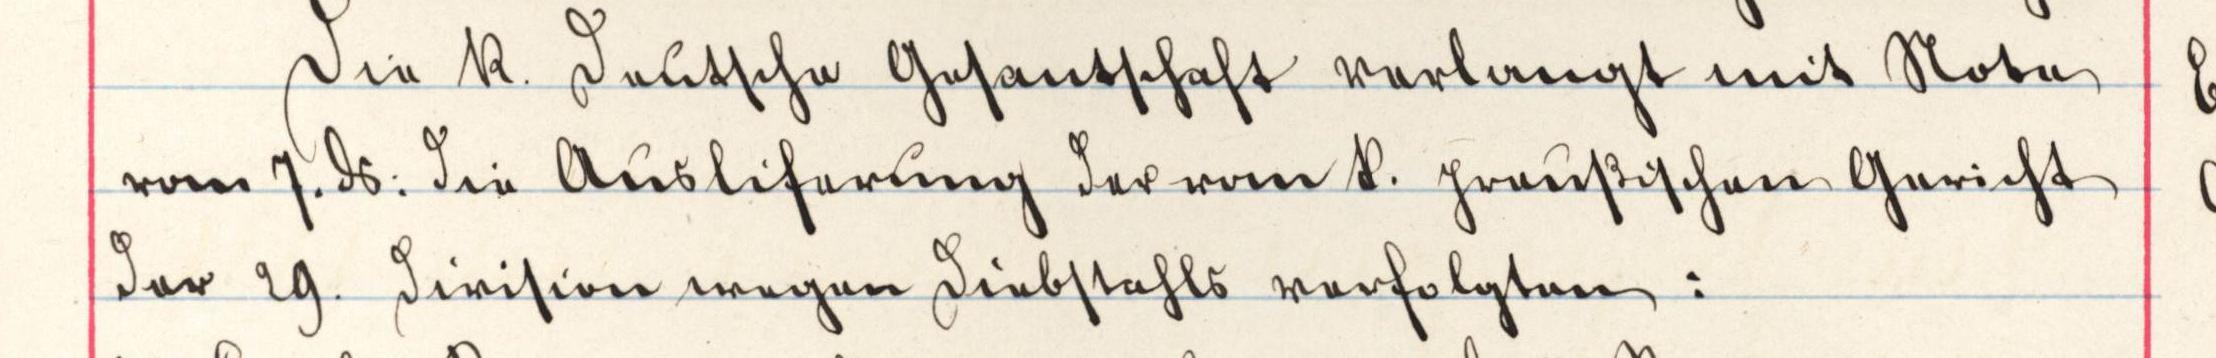 Die K. Deutsche Gesantschaft verlangt mit Note
vom 7. ds: die Ausliferung der vom k. preußischen Gericht
der 29. Division wegen Diebstahls verfolgten :